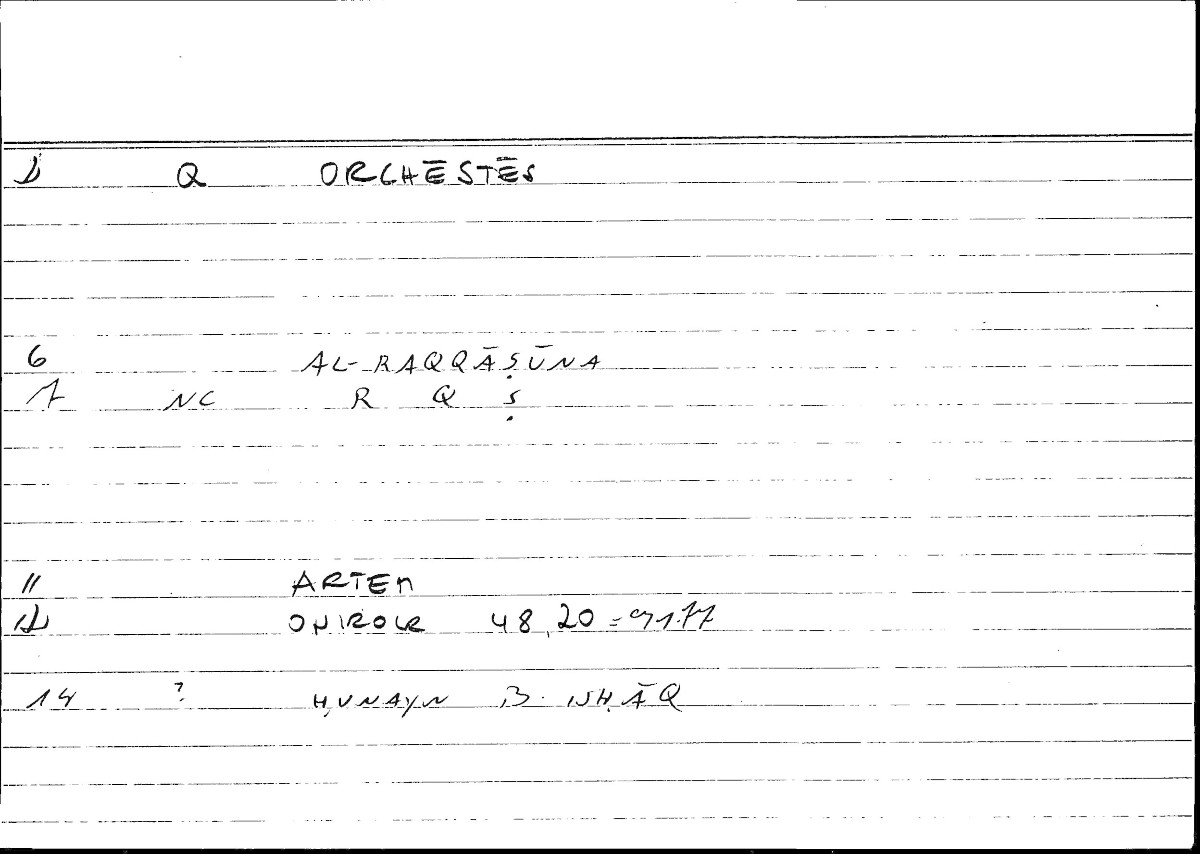 1 Q ORCHĒSTĒS
6 AL-RAQQĀṢŪNA
7 NC R Q Ṣ
11 ARTEM
12 ONIROCR 48,20 =
14 ? ḤUNAYN B. ISḤĀQ